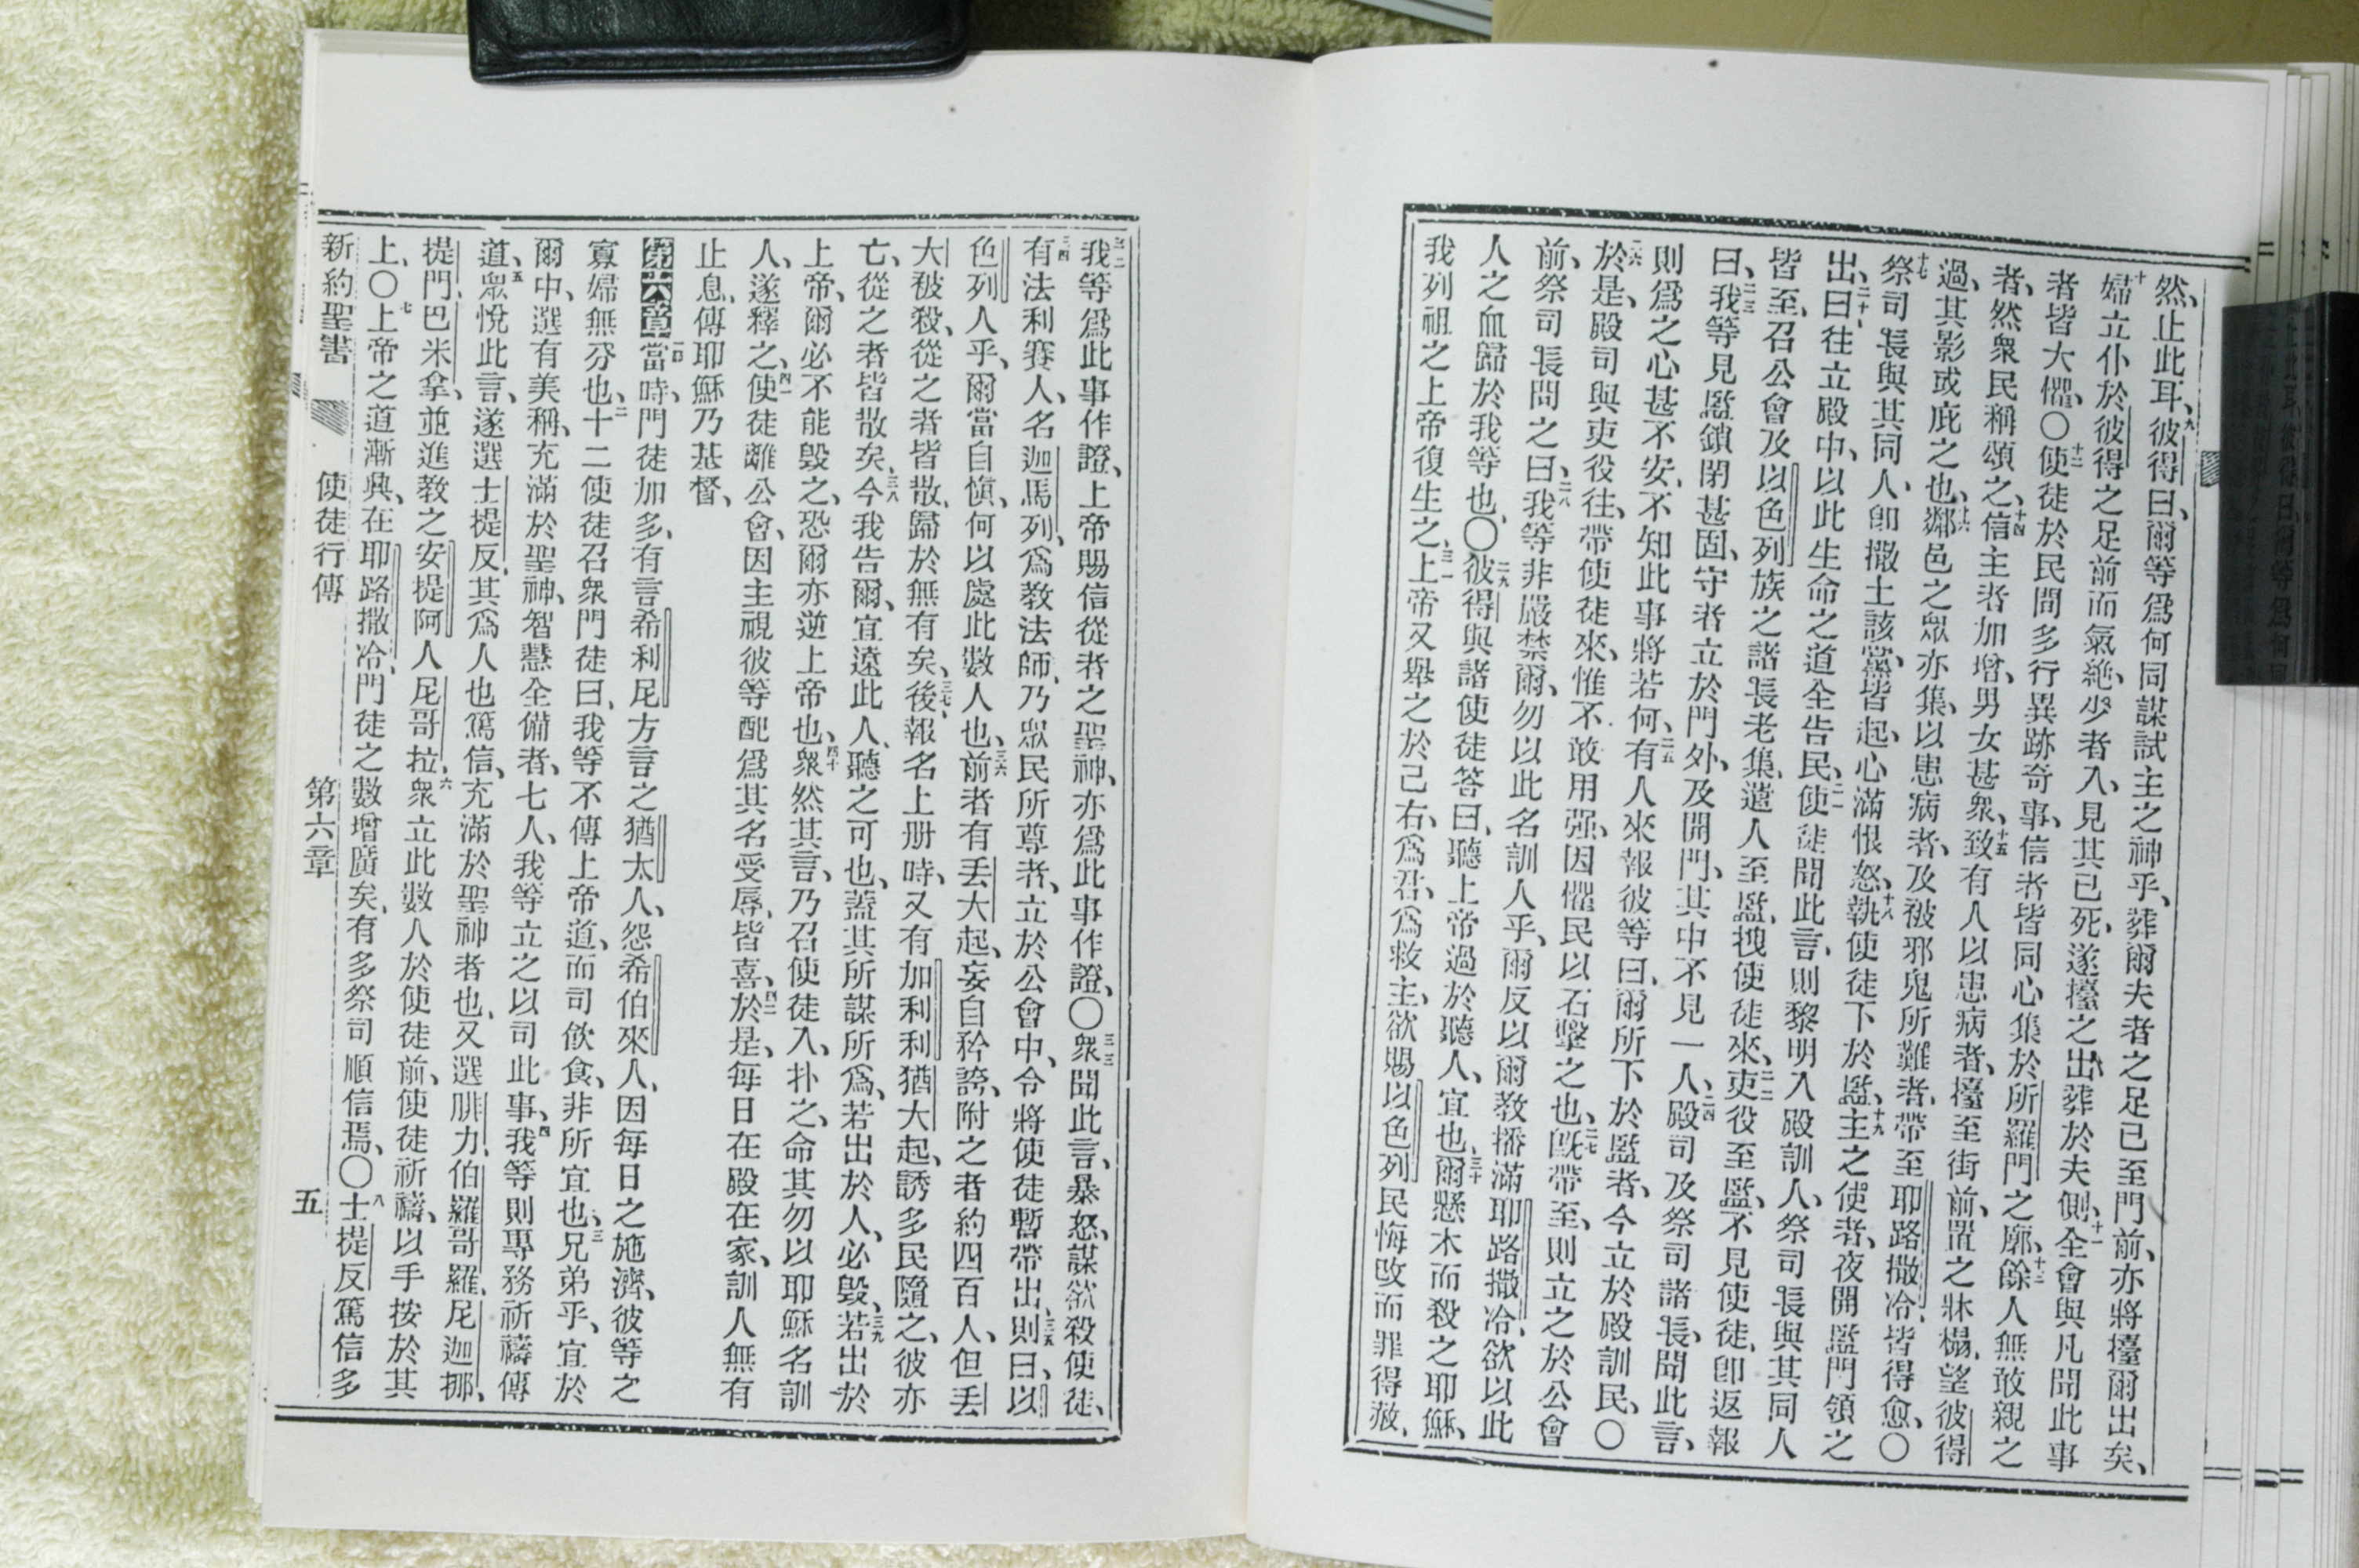 然、止此耳、九彼得曰、爾等爲何同謀試主之神乎、葬爾夫者之足已至門前、亦將擡爾出矣、
十婦立仆於彼得之足前而氣絶、少者入、見其已死、遂擡之出、葬於夫側、十一全會與凡聞此事
者皆大懼、〇十二使徒於民間多行異跡奇事、信者皆同心集於所羅門之廓、十三餘人無敢親之
者、然衆民稱頌之、十四信主者加增、男女甚衆、十五致有人以患病者、擡至街前、置之牀榻、望彼得
過、其影或庇之也、十六鄰邑之眾亦集、以患病者、及被邪鬼所難者、帶至耶路撒冷、皆得愈、〇
十七祭司長與其同人、卽撒土該黨、皆起、心滿恨怒、十八執使徒下於監、十九主之使者、夜開監門領之
出、曰、二十往立殿中、以此生命之道全告民、二一使徒聞此言、則黎明入殿訓人、祭司長與其同人
皆至、召公會及以色列族之諸長老集、遣人至監、拽使徒來、二二吏役至監、不見使徒、卽返報
曰、二三我等見監鎖閉甚固、守者立於門外、及開門、其中不見一人、二四殿司及祭司諸長、聞此言、
則爲之心甚不安、不知此事將若何、二五有人來報彼等曰、爾所下於監者、今立於殿訓民、〇
二六於是、殿司與吏役往、帶使徒來、惟不敢用强、因懼民以石擊之也、二七旣帶至、則立之於公會
前、祭司長問之曰、二八我等非嚴禁爾、勿以此名訓人乎、爾反以爾教播滿耶路撒冷、欲以此
人之血歸於我等也、〇二九彼得與諸使徒答曰、聽上帝過於聽人、宜也、三十爾懸木而殺之耶穌、
我列祖之上帝復生之、三一上帝又舉之於己右、爲君、爲救主、欲賜以色列民悔改而罪得赦、
三二我等爲此事作證、上帝賜信從者之聖神、亦爲此事作證、〇三三衆聞此言、暴怒、謀欲殺使徒、
三四有法利賽人、名迦馬列、爲教法師、乃眾民所尊者、立於公會中、令將使徒暫帶出、三五則曰、以
色列人乎、爾當自愼、何以處此數人也、三六前者有丢大起、妄自矜誇、附之者約四百人、但丢
大被殺、從之者皆散、歸於無有矣、三七後、報名上册時、又有加利利猶大起、誘多民隨之、彼亦
亡、從之者皆散矣、三八今我告爾、宜遠此人、聽之可也、蓋其所謀所爲、若出於人、必毀、三九若出於
上帝、爾必不能毀之、恐爾亦逆上帝也、四十衆然其言、乃召使徒入、扑之、命其勿以耶穌名訓
人、遂釋之、四一使徒離公會、因主視彼等配爲其名受辱、皆喜、四二於是、每日在殿在家、訓人無有
止息、傳耶穌乃基督、
第六章一節當時、門徒加多、有言希利尼方言之猶太人、怨希伯來人、因每日之施濟、彼等之
寡婦無分也、二十二使徒召衆門徒曰、我等不傳上帝道、而司飲食、非所宜也、三兄弟乎、宜於
爾中、選有美稱、充滿於聖神、智慧全備者、七人、我等立之以司此事、四我等則專務祈禱傳
道、五眾悅此言、遂選士提反、其爲人也篤信、充滿於聖神者也、又選腓力、伯羅哥羅、尼迦挪、
提門、巴米拿、並進教之安提阿人尼哥拉、六衆立此數人於使徒前、使徒祈禱、以手按於其
上、〇七上帝之道漸興、在耶路撒冷、門徒之數增廣矣、有多祭司順信焉、〇八士提反篤信多
新約聖書　使徒行傳　第六章　五